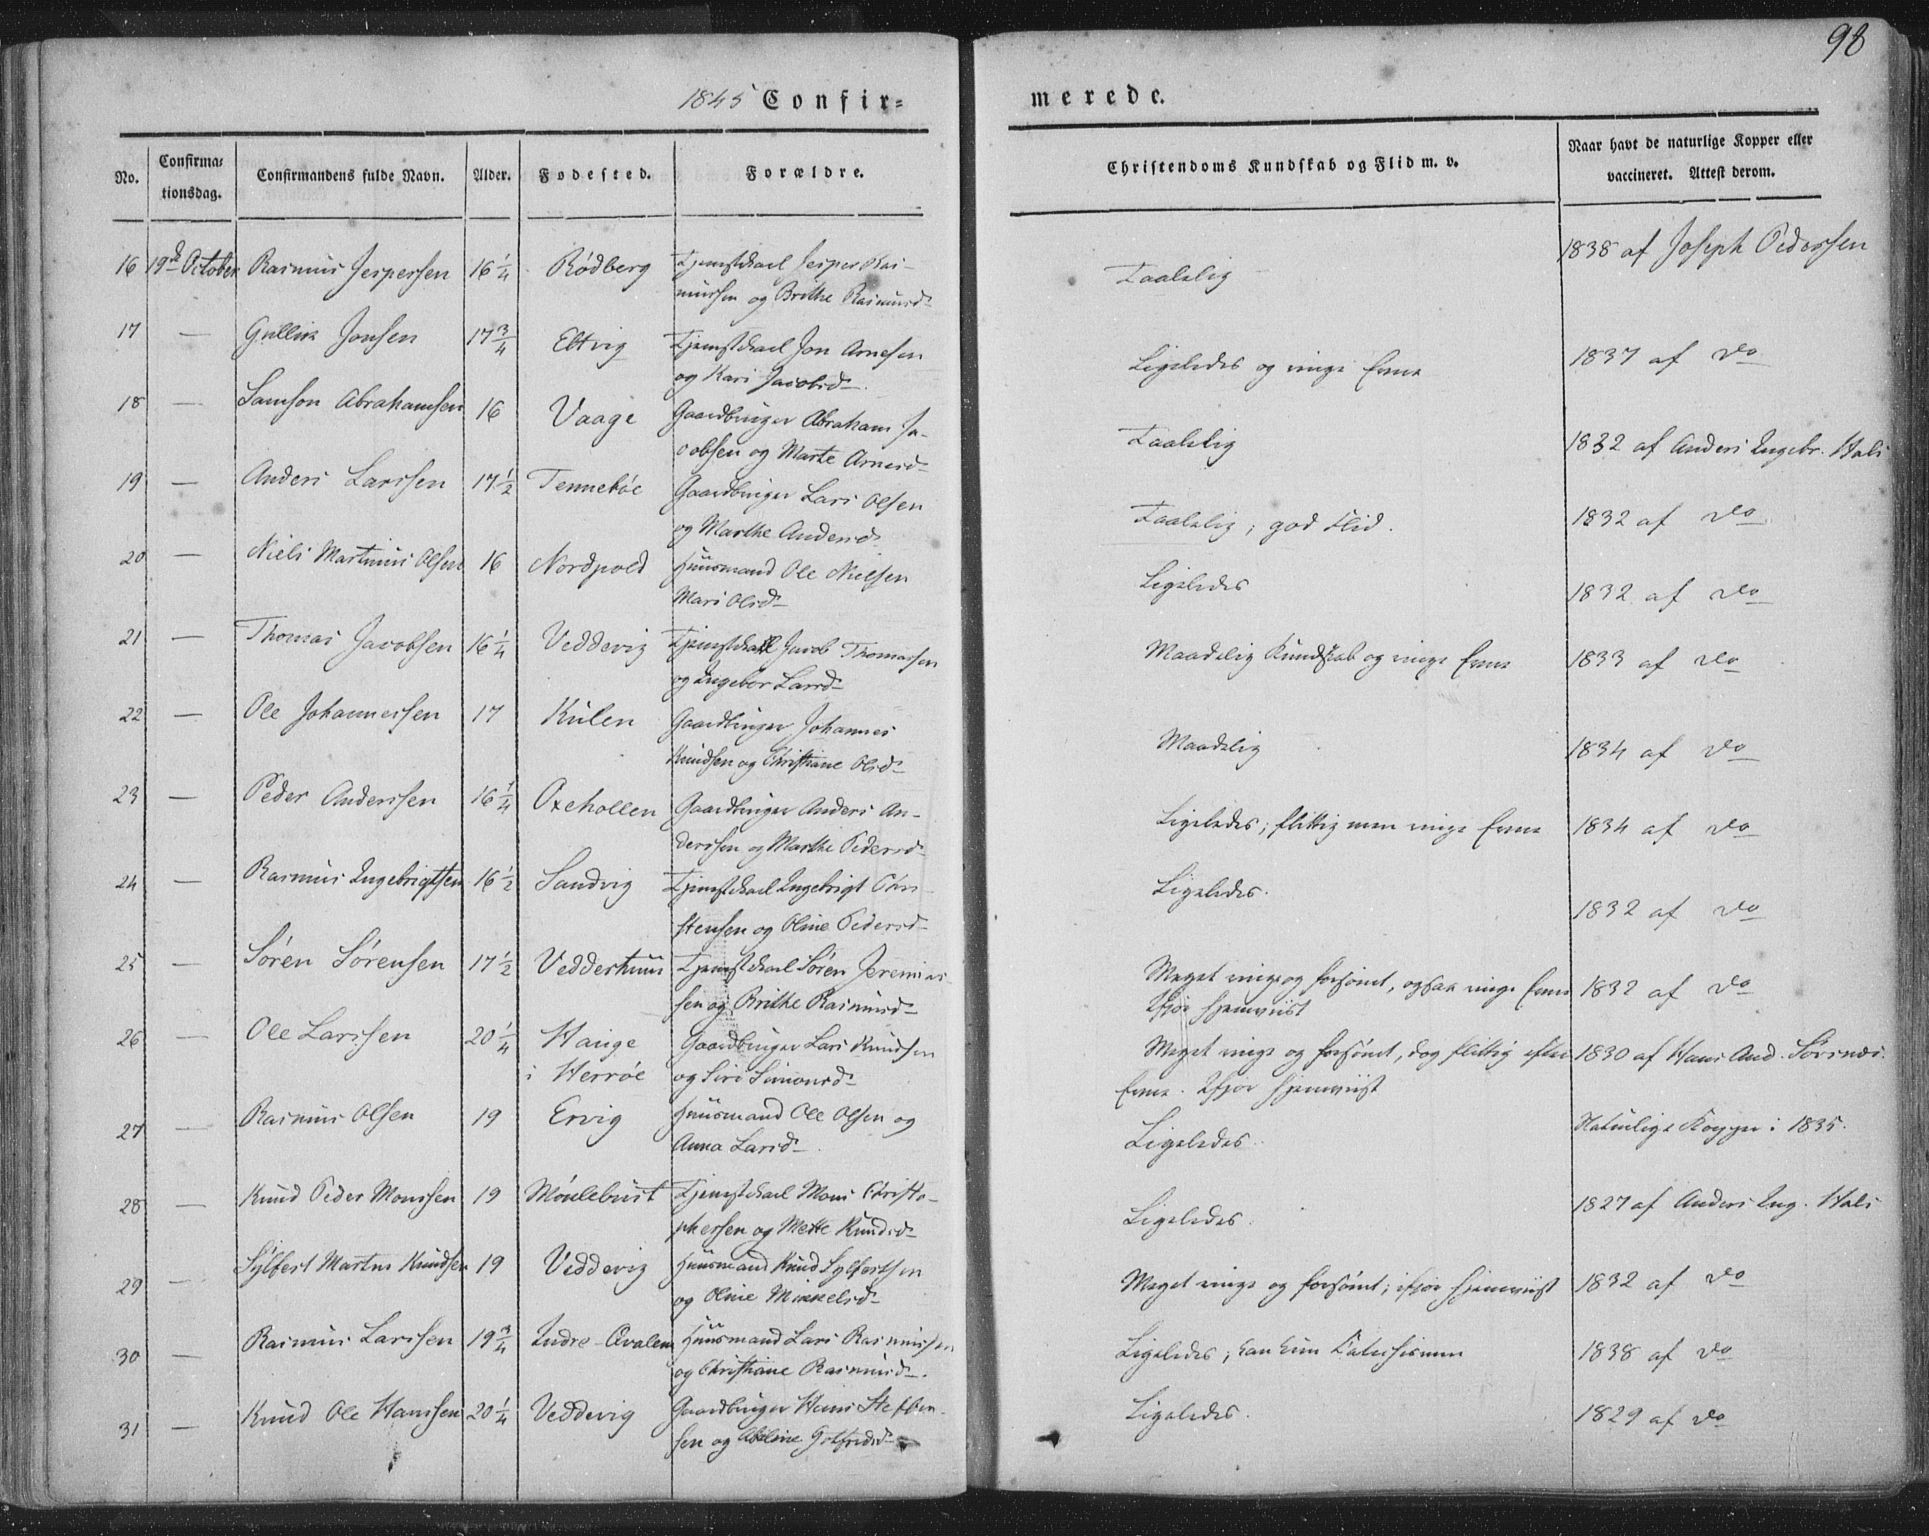 98
1845 Confir-
merede.
No.
Confirma-
tionsdag.
Confirmandens fulde Navn.
Alder.
Fodested.
Forældre.
Christendoms Kundskab og Flid m. v.
Naar havt de naturlige Kopper eller
vaccineret. Attest derom.
16 19de October Rasmus Jespersen 16 1/4 Rødberg Tjenestekarl Jesper Ras-
mussen og Brithe Rasmusd.
Taalelig
1838 af Joseph Pederssen
17 — Gullik Jonsen 17 3/4 Eltvig Tjenestekarl Jon Arnesen
og Kari Jacobsd.
Ligeledes og ringe Evne
1837 af Do
18 — Samson Abrahamsen 16 Vaage Gaardbruger Abraham Ja-
cobsen og Marte Arnesd.
Taalelig
1832 af Anders Engebr. Hals
19 — Anders Larssen 17 1/2 Tennebøe Gaardbruger Lars Olsen
og Marthe Andersd.
Taalelig, god Flid.
1832 af Do
20 — Niels Martinus Olsen 16 Nordpold Huusmand Ole Nielsen
Mari Olsd.
Ligeledes
1832 af Do
21 — Thomas Jacobsen 16 1/4 Veddevig Tjenestekarl Jacob Thomassen
og Ingebor Larsd.
Maadelig Kundskab og ringe Evne
1833 af Do
22 — Ole Johannessen 17 Kulen Gaardbruger Johannes
Knudsen og Christiane Olsd.
Maadelig
1834 af Do
23 — Peder Anderssen 16 1/4 Oxehollen Gaardbruger Anders An-
derssen og Marthe Pedersd.
Ligeledes; flittig men ringe Evne
1834 af Do
24 — Rasmus Ingebrigtsen 16 1/2 Sandvig Tjenestekarl Ingebrigt Chri-
stensen og Oline Pedersd.
Ligeledes.
1832 af Do
25 — Søren Sørensen 17 1/2 Vedderhuus Tjenestekarl Søren Jeremias-
sen og Brithe Rasmusd.
Meget ringe og forsømt, ogsaa ringe Evne
ifjor hjemviist
1832 af Do
26 — Ole Larssen 20 1/4 Hauge
i Herrøe
Gaardbruger Lars Knudsen
og Siri Simonsd.
Meget ringe og forsømt, dog flittig efter
Evne. Ifjor hjemviist
1830 af Hans And. Sørsnes.
27 — Rasmus Olsen 19 Ervig Huusmand Ole Olsen og
Anna Larsd.
Ligeledes.
Naturlige Kopper i 1835.
28 — Knud Peder Monssen 19 Møulebust Tjenestekarl Mons Christo-
phersen og Mette Knudsd.
Ligeledes.
1827 af Anders Eng. Hals
29 — Sylfest Martin Knudsen 19 Veddevig Huusmand Knud Sylfestsen
og Oline Mikkelsd.
Meget ringe og forsømt; ifjor hjemviist
1832 af Do
30 — Rasmus Larssen 19 3/4 Indre-Qvalen Huusmand Lars Rasmussen
og Christiane Rasmusd.
Ligeledes; kan kun Katechismen
1838 af Do
31 — Knud Ole Hanssen 20 1/4 Veddevig Gaardbruger Hans Steffen-
sen og Abeline
Ligeledes.
1829 af Do